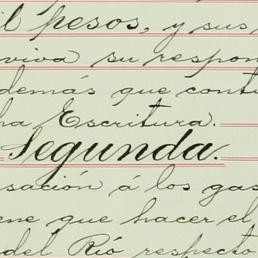 il pesos, y sus
viva su respon
demás que cont
ha Escritura.
Segunda.
sación á los gas
ene que hacer el
del Río respecto